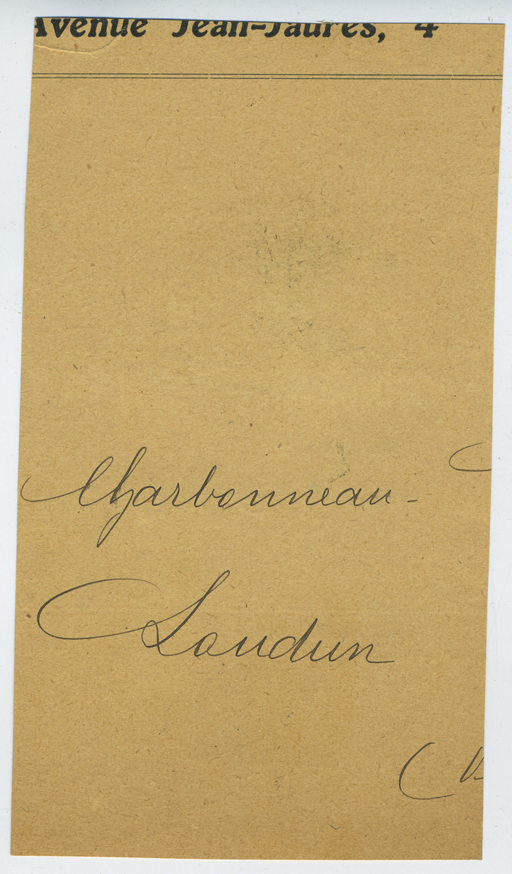 Avenue Jean-Jaurès, 4
Charbonneau-
Loudun